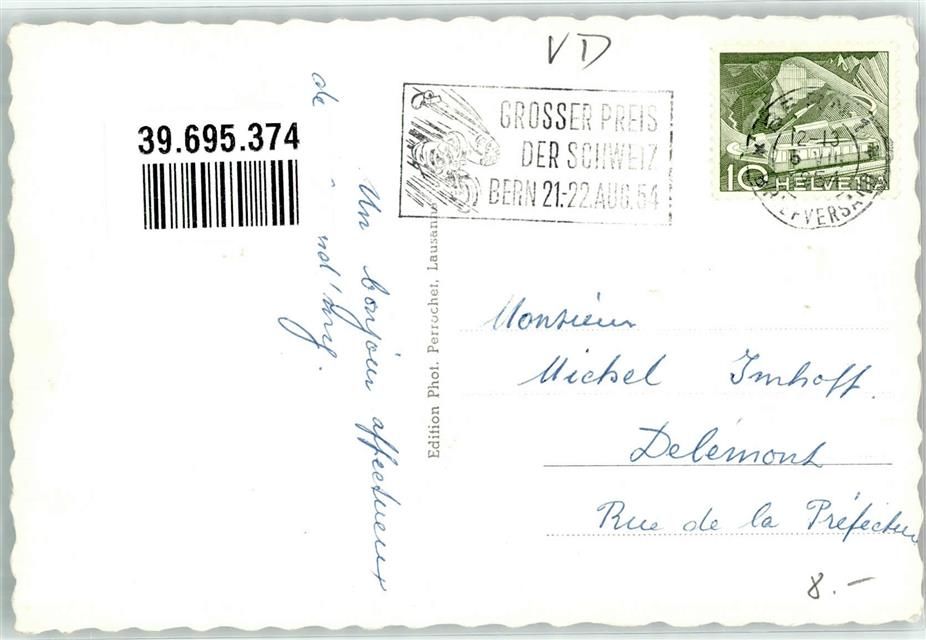 VD
39.695.374
GROSSER PREIS
DER SCHWEIZ
BERN 21.-22. AUG. 54
10 HELVETIA
BERN 1
12-13
BRIEFVERSAND
Un bonjour affectueux
de
Edition Phot. Perrochet, Lausanne
Monsieur
Michel Imhoff.
Delémont
Rue de la Préfecture
8.–